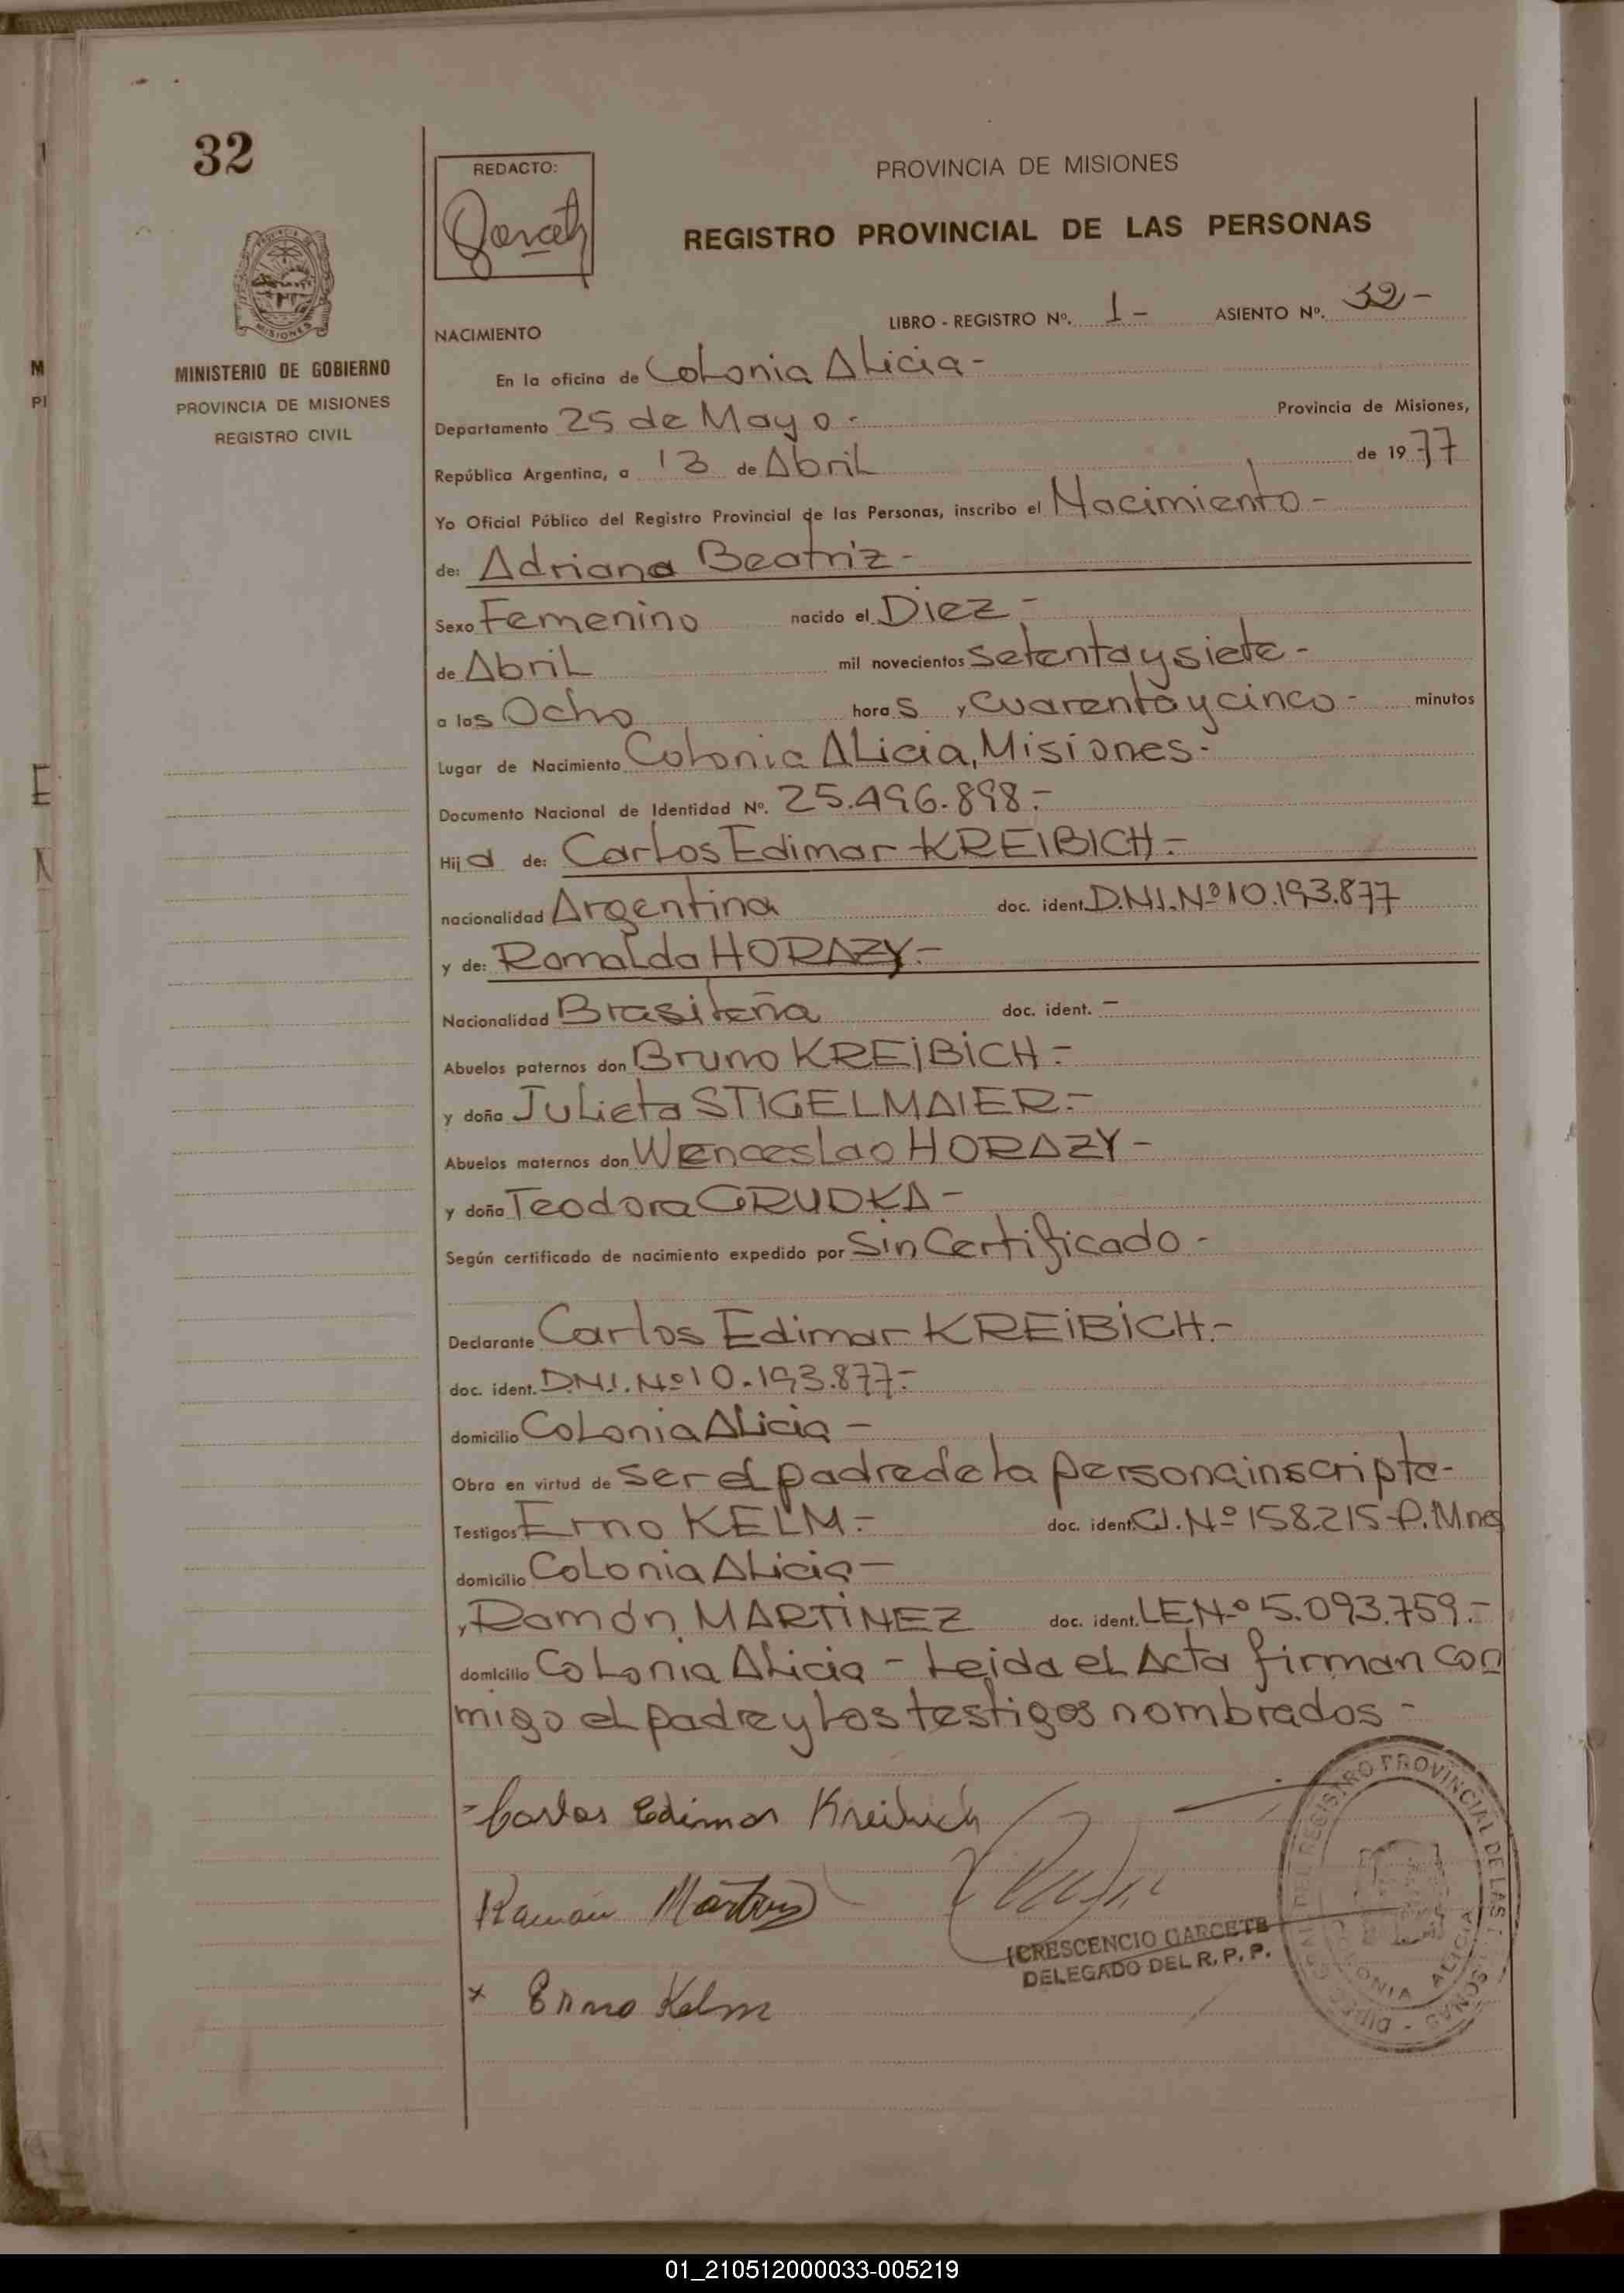 32
REDACTO:
PROVINCIA DE MISIONES
REGISTRO PROVINCIAL DE LAS PERSONAS
MISIONES
MINISTERIO DE GOBIERNO
PROVINCIA DE MISIONES
REGISTRO CIVIL
LIBRO - REGISTRO Nº. 1 - ASIENTO Nº. 32 -
NACIMIENTO
En la oficina de Colonia Alicia -
Departamento 25 de Mayo - Provincia de Misiones,
República Argentina, a 13 de Abril de 1977
Yo Oficial Público del Registro Provincial de las Personas, inscribo el Nacimiento -
de: Adriana Beatriz -
Sexo Femenino nacido el Diez -
de Abril mil novecientos setenta y siete -
a las Ocho horas, y cuarenta y cinco - minutos
Lugar de Nacimiento Colonia Alicia, Misiones -
Documento Nacional de Identidad Nº. 25.496.898 -
Hija de: Carlos Edimar KREIBICH -
nacionalidad Argentina doc. ident. D.N.I. Nº 10.193.877
y de: Romalda HORAZY -
Nacionalidad Brasileña doc. ident. -
Abuelos paternos don Bruno KREIBICH -
y doña Julieta STIGELMAIER -
Abuelos maternos don Wenceslao HORAZY -
y doña Teodora GRUDKA -
Según certificado de nacimiento expedido por Sin Certificado -
Declarante Carlos Edimar KREIBICH -
doc. ident. D.N.I. Nº 10.193.877 -
domicilio Colonia Alicia -
Obra en virtud de ser el padre de la persona inscripta -
Testigos Erno KELM - doc. ident. C.I. Nº 158.215 - P. Mnes
domicilio Colonia Alicia -
y Ramón MARTINEZ doc. ident. L.E. Nº 5.093.759 -
domicilio Colonia Alicia - Leida el Acta firman con
migo el padre y los testigos nombrados -
- Carlos Edimar Kreibich
Ramón Martinez
CRESCENCIO GARCETE
DELEGADO DEL R. P. P.
x Erno Kelm
REGISTRO PROVINCIAL DE LAS PERSONAS
COLONIA ALICIA
01_210512000033-005219